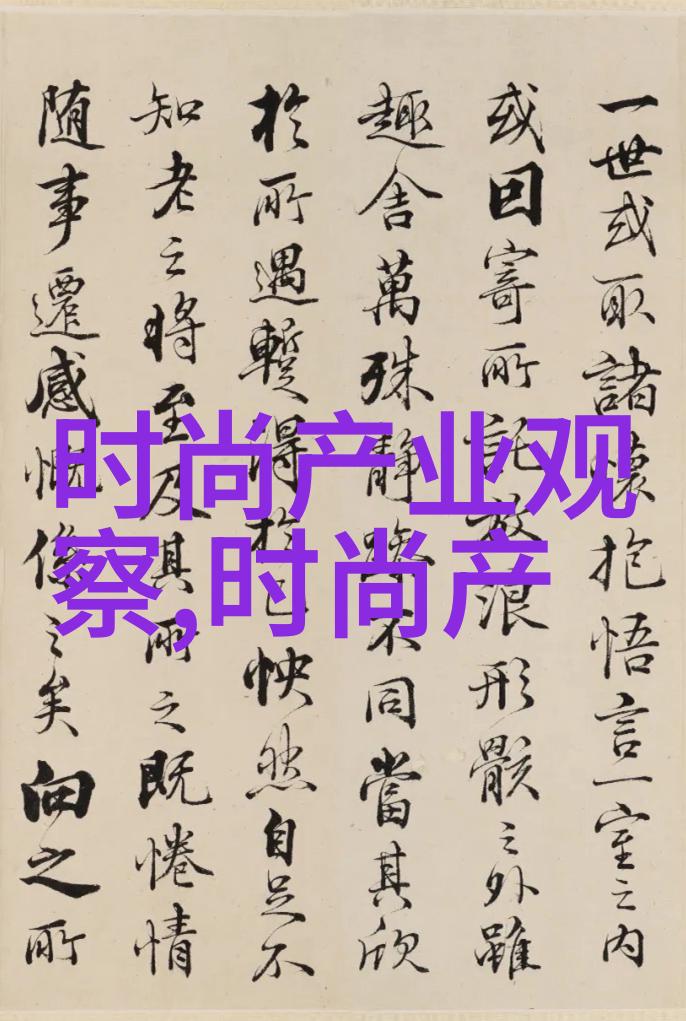 一世或取諸懷抱悟言一室之內
或因寄所託放浪形骸之外雖
趣舍萬殊靜躁不同當其欣
於所遇暫得於己怏然自足不
知老之將至及其所之既惓情
随事遷感慨係之矣向之所
时尚产业观
察,时尚产